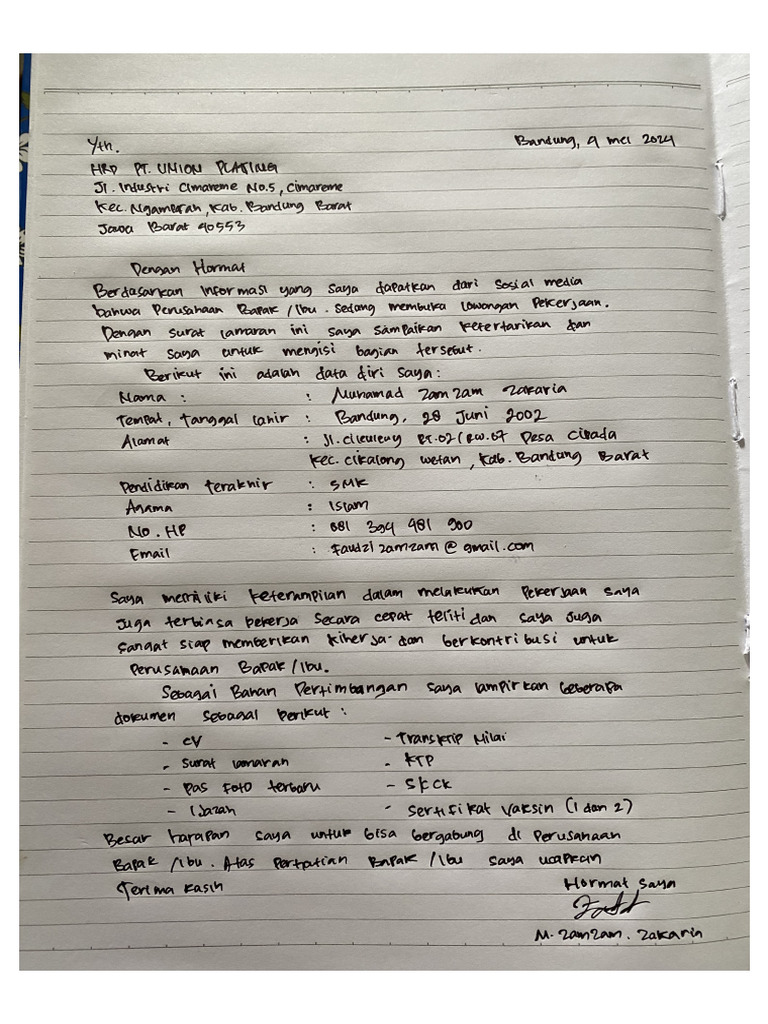 Bandung, 9 mei 2024
Yth.
HRD PT. UNION PLATING
Jl. Industri Cimareme No.5, Cimareme
Kec. Ngamprah, Kab. Bandung Barat
Jawa Barat 40553
Dengan Hormat
Berdasarkan informasi yang saya dapatkan dari sosial media
bahwa Perusahaan Bapak /Ibu. Sedang membuka lowongan Pekerjaan.
Dengan surat lamaran ini saya sampaikan ketertarikan dan
minat saya untuk mengisi bagian tersebut.
Berikut ini adalah data diri saya:
Nama : : Muhamad Zamzam Zakaria
Tempat, tanggal lahir : Bandung, 28 Juni 2002
Alamat : Jl. Cileuleuy RT.02/RW.07 Desa Cipada
Kec. Cikalong wetan, Kab. Bandung Barat
Pendidikan terakhir : SMK
Agama : Islam
No. HP : 081 394 481 900
Email : Faudzizamzam@gmail.com
Saya memiliki keterampilan dalam melakukan Pekerjaan saya
Juga terbiasa bekerja secara cepat teliti dan saya juga
sangat siap memberikan kinerja dan berkontribusi untuk
Perusahaan Bapak /Ibu.
Sebagai Bahan Pertimbangan saya lampirkan beberapa
dokumen sebagai berikut :
- CV - Transkrip Nilai
- Surat lamaran - KTP
- Pas Foto terbaru - SKCK
- Ijazah - Sertifikat Vaksin (1 dan 2)
Besar harapan saya untuk bisa bergabung di Perusahaan
Bapak /Ibu. Atas Perhatian Bapak /Ibu saya ucapkan
Terima Kasih
Hormat saya
M. Zamzam. Zakaria